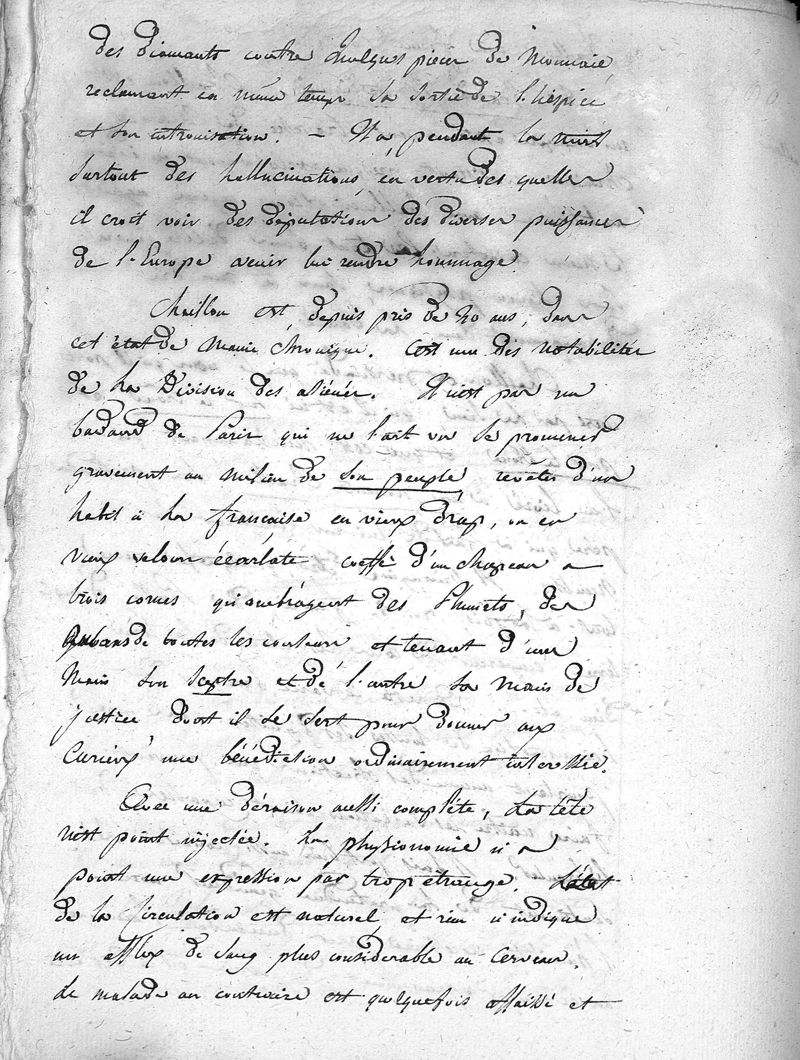 des diamants contre quelques pieces de Monnaie
reclamant en même temps sa sortie de l'hospice
et son intronisation. – Il a pendant la nuit
surtout des hallucinations, en vertu des quelles
il croit voir des députations des diverses puissances
de l'Europe venir lui rendre hommage.
Chaillou est, depuis près de 20 ans, dans
cet état de Manie chronique. C'est une des notabilités
de la Division des aliénés. Il n'est pas un
badaud de Paris qui ne l'ait vu se promener
gravement au milieu de son peuple, revêtu d'un
habit à la française en vieux drap, ou en
vieux velours écarlate coeffé d'un chapeau a
trois cornes qu'ombragent des Plumets, des
Rubans de toutes les couleurs et tenant d'une
Main son sceptre et de l'autre sa main de
justice dont il se sert pour donner aux
Curieux une bénédiction ordinairement interessée.
Avec une déraison aussi complète, La tête
n'est point injectée. La physionomie n'a
point une expression par trop étrange. L'état
de la Circulation est naturel, et rien n'indique
un afflux de sang plus considerable au Cerveau.
Le malade au contraire est quelquefois affaissé et